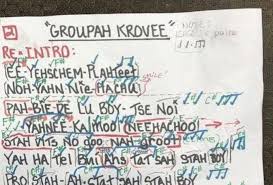 "GROUPAH KROVEE"
RE-INTRO:
EE-YEHSCHEM-PLAHTEET
NOH-YAHN NIE-PLACHU
PAH-BIE-DE LU BOY-TSE NOI
YAHNEE KAHMOO (NEEHACHOO)
STAH VITS NO goo NAH groot
YAH HA tel Bwi Ahs tat SAH STAH BOY
PRO STAH-AH-Stat SAH STAH BOY